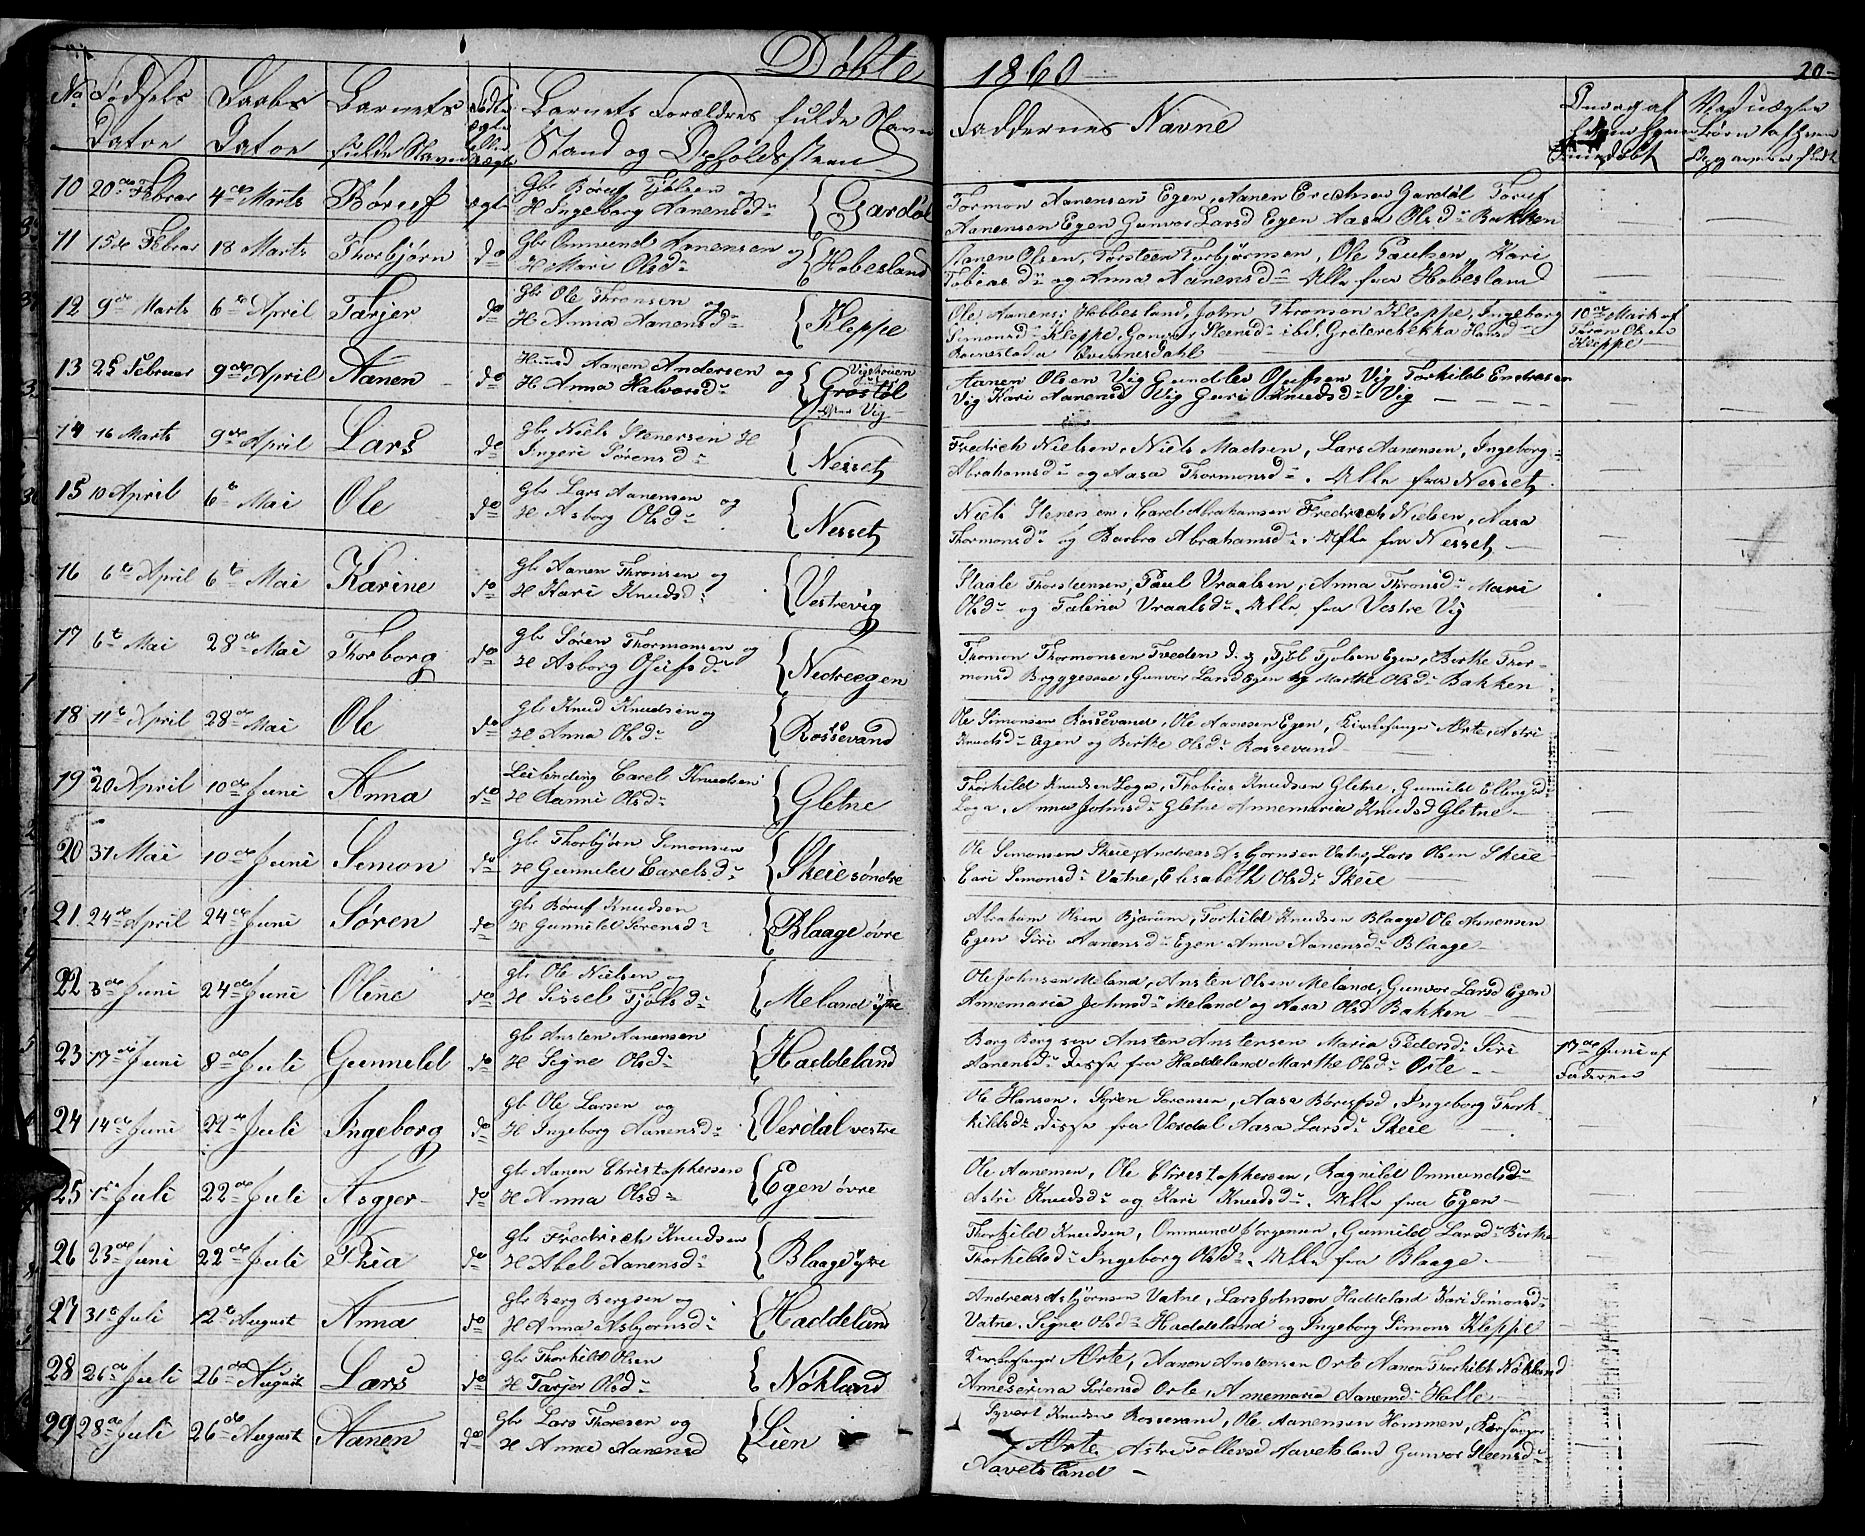 Døbte 1860 20-
No Fødsels Daabs Barnets Barnets Forældres fulde Navne
Datoe Datoe fulde Navne Stand og Opholdsteeder
Faddernes Navne
10 20de Febrar 4de Marts Børuf ægte Gbr Børuf Tjølsen og { Gardøl
H Ingeborg Aanensd:
Tormon Aanensen Egen, Aanen Erichsen Gardøl Toruf
Aanensen Egen Gunvor Larsd Egen Aasa Olsd: Bakken
11 15de Febrar 18 Marts Thorbjørn do Gbr Ommund Aanensen og { Hobesland
H Mari Olsd:
Aanen Olsen, Torsteen Torbjørnsen, Ole Paulsen, Kari
Tobiasd: og Anna Aanensd: Alle fra Hobesland
12 9de Marts 6te April Tarjer do Gbr Ole Thronsen og { Kleppe
H Anna Aanensd:
Ole Aanens: Hobbesland, John Thronsen Kleppe, Ingeborg
Simonsd: Kleppe, Gonvor Steensd: ibd. Greterebekka Hansd
Qvinnesdahl
10de Marts af
Thron Olsen
Kleppe
13 25 Februar 9de April Aanen do Husmd Aanen Andersen og { Grostøl
H Anna Halvorsd:
Aanen Olsen Vig Gundlev Osufsen Vig Torkild Endresen
Vig Kari Aanensd Vig Guri Knudsd: Vig
14 16 Marts 9de April Lars do Gbr Niels Stenersen H { Nesset
Ingeri Sørensd:
Fredrich Nielsen, Niels Madsen, Lars Aanensen, Ingeborg
Abrahamsd: og Aasa Thormonsd:. Alle fra Nesset
15 10 April 6te Mai Ole do Gbr Lars Aanensen og { Nesset
H Asborg Olsd:
Niels Stenersen, Carel Abrahamsen Fredrich Nielsen, Aasa
Thormonsd: og Barbra Abrahamsd:. Alle fra Nesset
16 6te April 6te Mai Karine do Gbr Aanen Thronsen og { Vestrevig
H Kari Knudsd:
Staale Thorsteensen, Paul Vraalsen, Anna Thronsd: Mari
Olsd: og Talina Vraalsd:. Alle fra Vestre Vig
17 6te Mai 28de Mai Thorborg do Gbr Søren Thormonsen og { Nedreegen
H Asborg Osufsd:
Thomon Thormonsen Tveden, Tjøl Tjølsen Egen, Birthe Thor-
monsd Bryggesaae, Gunvor Larsd Egen og Marthe Olsd: Bakken
18 11te April 28de Mai Ole do Gbr Knud Knudsen og { Rossevand
H Anna Olsd:
Ole Simonsen Rossevand, Ole Aanesen Egen, Kirkesanger Ørte, Astri
Knudsd: Egen og Birthe Olsd: Rossevand
19 20 April 10de Juni Anna do Leilending Carel Knudsen { Gletne
H Ranni Olsd:
Thorkild Knudsen Loga, Thobias Knudsen Gletne, Gunnild Ellingsd:
Loga, Anna Johnsd: Gletne Annemaria Knudsd Gletne
20 31 Mai 10de Juni Simon do Gbr Thorbjørn Simonsen { Skeie søndre
H Gunnild Carelsd:
Ole Simonsen Skeie, Andreas Asbjornsen Vatne, Lars Olsen Skeie
Cari Simonsd: Vatne, Elisabeth Olsd: Skeie
21 24de April 24de Juni Søren do Gbr Børuf Knudsen { Blaage øvre
H Gunnild Sørensd:
Abraham Olsen Bjærum, Torkild Knudsen Blaage Ole Aanensen
Egen Siri Aanensd: Egen Anna Aanensd: Blaage
22 3de Juni 24de Juni Oline do Gbr Ole Nielsen og { Meland ytre
H Sissel Tjølsd:
Ole Johnsen Meland, Ansten Olsen Meland, Gunvor Larsd Egen
Annemaria Johnsd: Meland og Aasa Olsd Bakken
23 17de Juni 8de Juli Gunnild do Gbr Ansten Aanensen { Haddeland
H Signe Olsd:
Borg Borgsen Ansten Anstensen Maria Pedersd: Siri
Aanensd: disse fra Haddeland Marthe Olsd: Ørte
17de Juni af
Faderen
24 14de Juni 22de Juli Ingeborg do Gbr Ole Larsen og { Verdal vestre
H Ingeborg Aanensd:
Ole Hansen, Søren Sørensen, Aasa Børufsd, Ingeborg Thork-
kildsd: disse fra Verdal Aasa Larsd: Skeie
25 1ste Juli 22de Juli Asgjer do Gbr Aanen Christophersen { Egen øvre
H Anna Olsd:
Ole Aanensen, Ole Christophersen, Ragnild Ommundsd:
Astri Knudsd: og Kari Knudsd:. Alle fra Egen
26 23de Juni 22de Juli Thia do Gbr Fredrich Knudsen { Blaage ytre
H Abel Aanensd:
Thorkild Knudsen, Ommund Jørgensen, Gunnild Larsd: Birthe
Thorkildsd: Ingeborg Olsd:. Alle fra Blaage
27 31te Juli 12te August Anna do Gbr Berg Bergsen og { Haddeland
H Anna Asbjornsd:
Andreas Asbjørnsen Vatne, Lars Johnson Haddeland Kari Simonsd:
Vatne, Signe Olsd: Haddeland og Ingeborg Simons Kleppe
28 26de Juli 26de August Lars do Gbr Thorkild Olsen { Nøkland
H Tarjer Olsd:
Kirkesanger Ørte, Aanen Anstensen Ørte Aanen Thorkilds Nøkland
Anneserina Sørensd Ørte, Annemaria Aanensd: Halle
29 28de Juli 26de August Aanen do Gbr Lars Thoresen og { Lien
H Anna Aanensd
Syvert Knudsen Rossevand, Ole Aanensen Hommen, Kirkesanger
Ørte Astri Tollevsd Aavetsland Gunvor Steensd:
Aavetsland